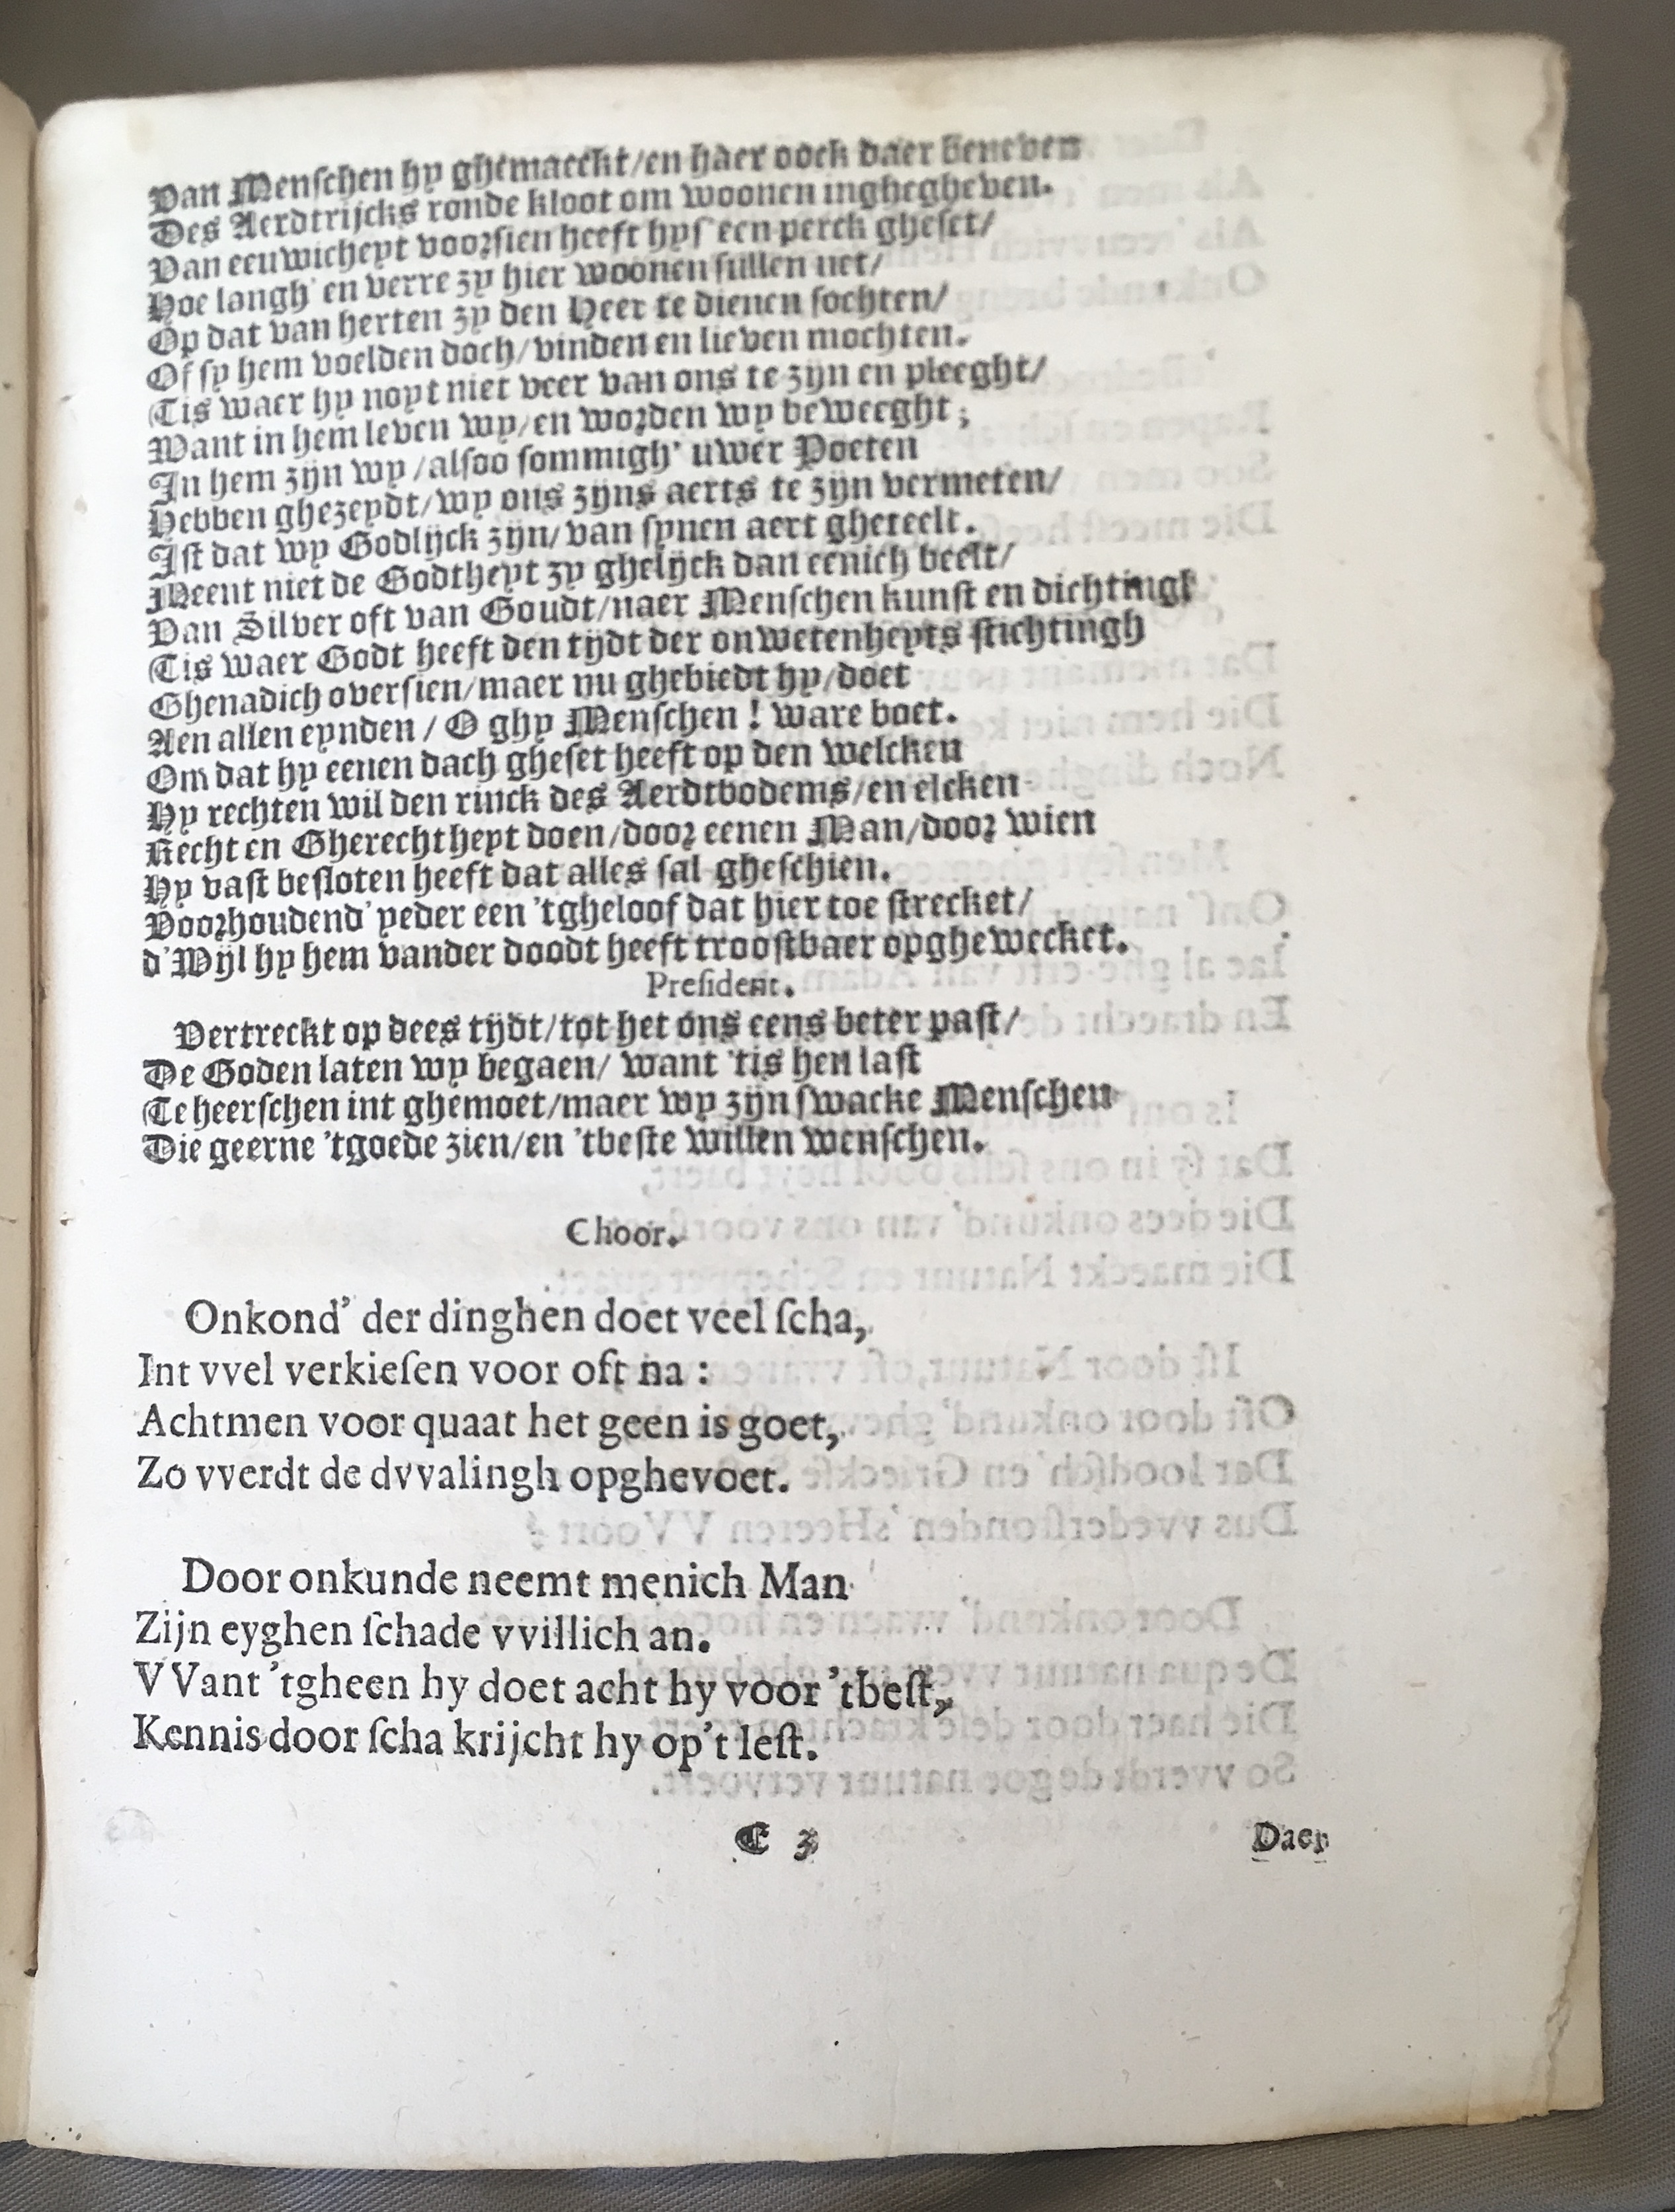 Van Menſchen hy ghemaeckt/en haer oock daer beneven
Des Aerdtrijcks ronde kloot om woonen inghegheven.
Van eeuwicheyt voorſien heeft hyſ' een perck gheſet/
Hoe langh' en verre zy hier woonen ſullen net/
Op dat van herten zy den Heer te dienen ſochten/
Of ſy hem voelden doch/vinden en lieven mochten.
Tis waer hy noyt niet veer van ons te zijn en pleeght/
Want in hem leven wy/en worden wy beweeght;
In hem zijn wy/alſoo ſommigh' uwer Poeten
Hebben ghezeydt/wy ons zijns aerts te zijn vermeten/
Iſt dat wy Godlijck zijn/van ſynen aert gheteelt.
Meent niet de Godtheyt zy ghelijck dan eenich beelt/
Van Silver oft van Goudt/naer Menſchen kunſt en dichtingh
Tis waer Godt heeft den tijdt der onwetenheyts ſtichtingh
Ghenadich overſien/maer nu ghebiedt hy/doet
Aen allen eynden / O ghy Menſchen ! ware boet.
Om dat hy eenen dach gheſet heeft op den welcken
Hy rechten wil den rinck des Aerdtbodems/en elcken
Recht en Gherechtheyt doen/door eenen Man/door wien
Hy vaſt beſloten heeft dat alles ſal gheſchien.
Voorhoudend' yeder een 'tgheloof dat hier toe ſtrecket/
d'Wijl hy hem vander doodt heeft trooſtbaer opghewecket.
Preſident.
Vertreckt op dees tijdt/tot het ons eens beter paſt/
De Goden laten wy begaen/ want 'tis hen laſt
Te heerſchen int ghemoet/maer wy zijn ſwacke Menſchen
Die geerne 'tgoede zien/en 'tbeſte willen wenſchen.
Choor.
Onkond' der dinghen doet veel ſcha,
Int vvel verkieſen voor oft na :
Achtmen voor quaat het geen is goet,
Zo vverdt de dvvalingh opghevoet.
Door onkunde neemt menich Man
Zijn eyghen ſchade vvillich an.
VVant 'tgheen hy doet acht hy voor 'tbeſt,
Kennis door ſcha krijcht hy op't leſt.
C 3 Daer